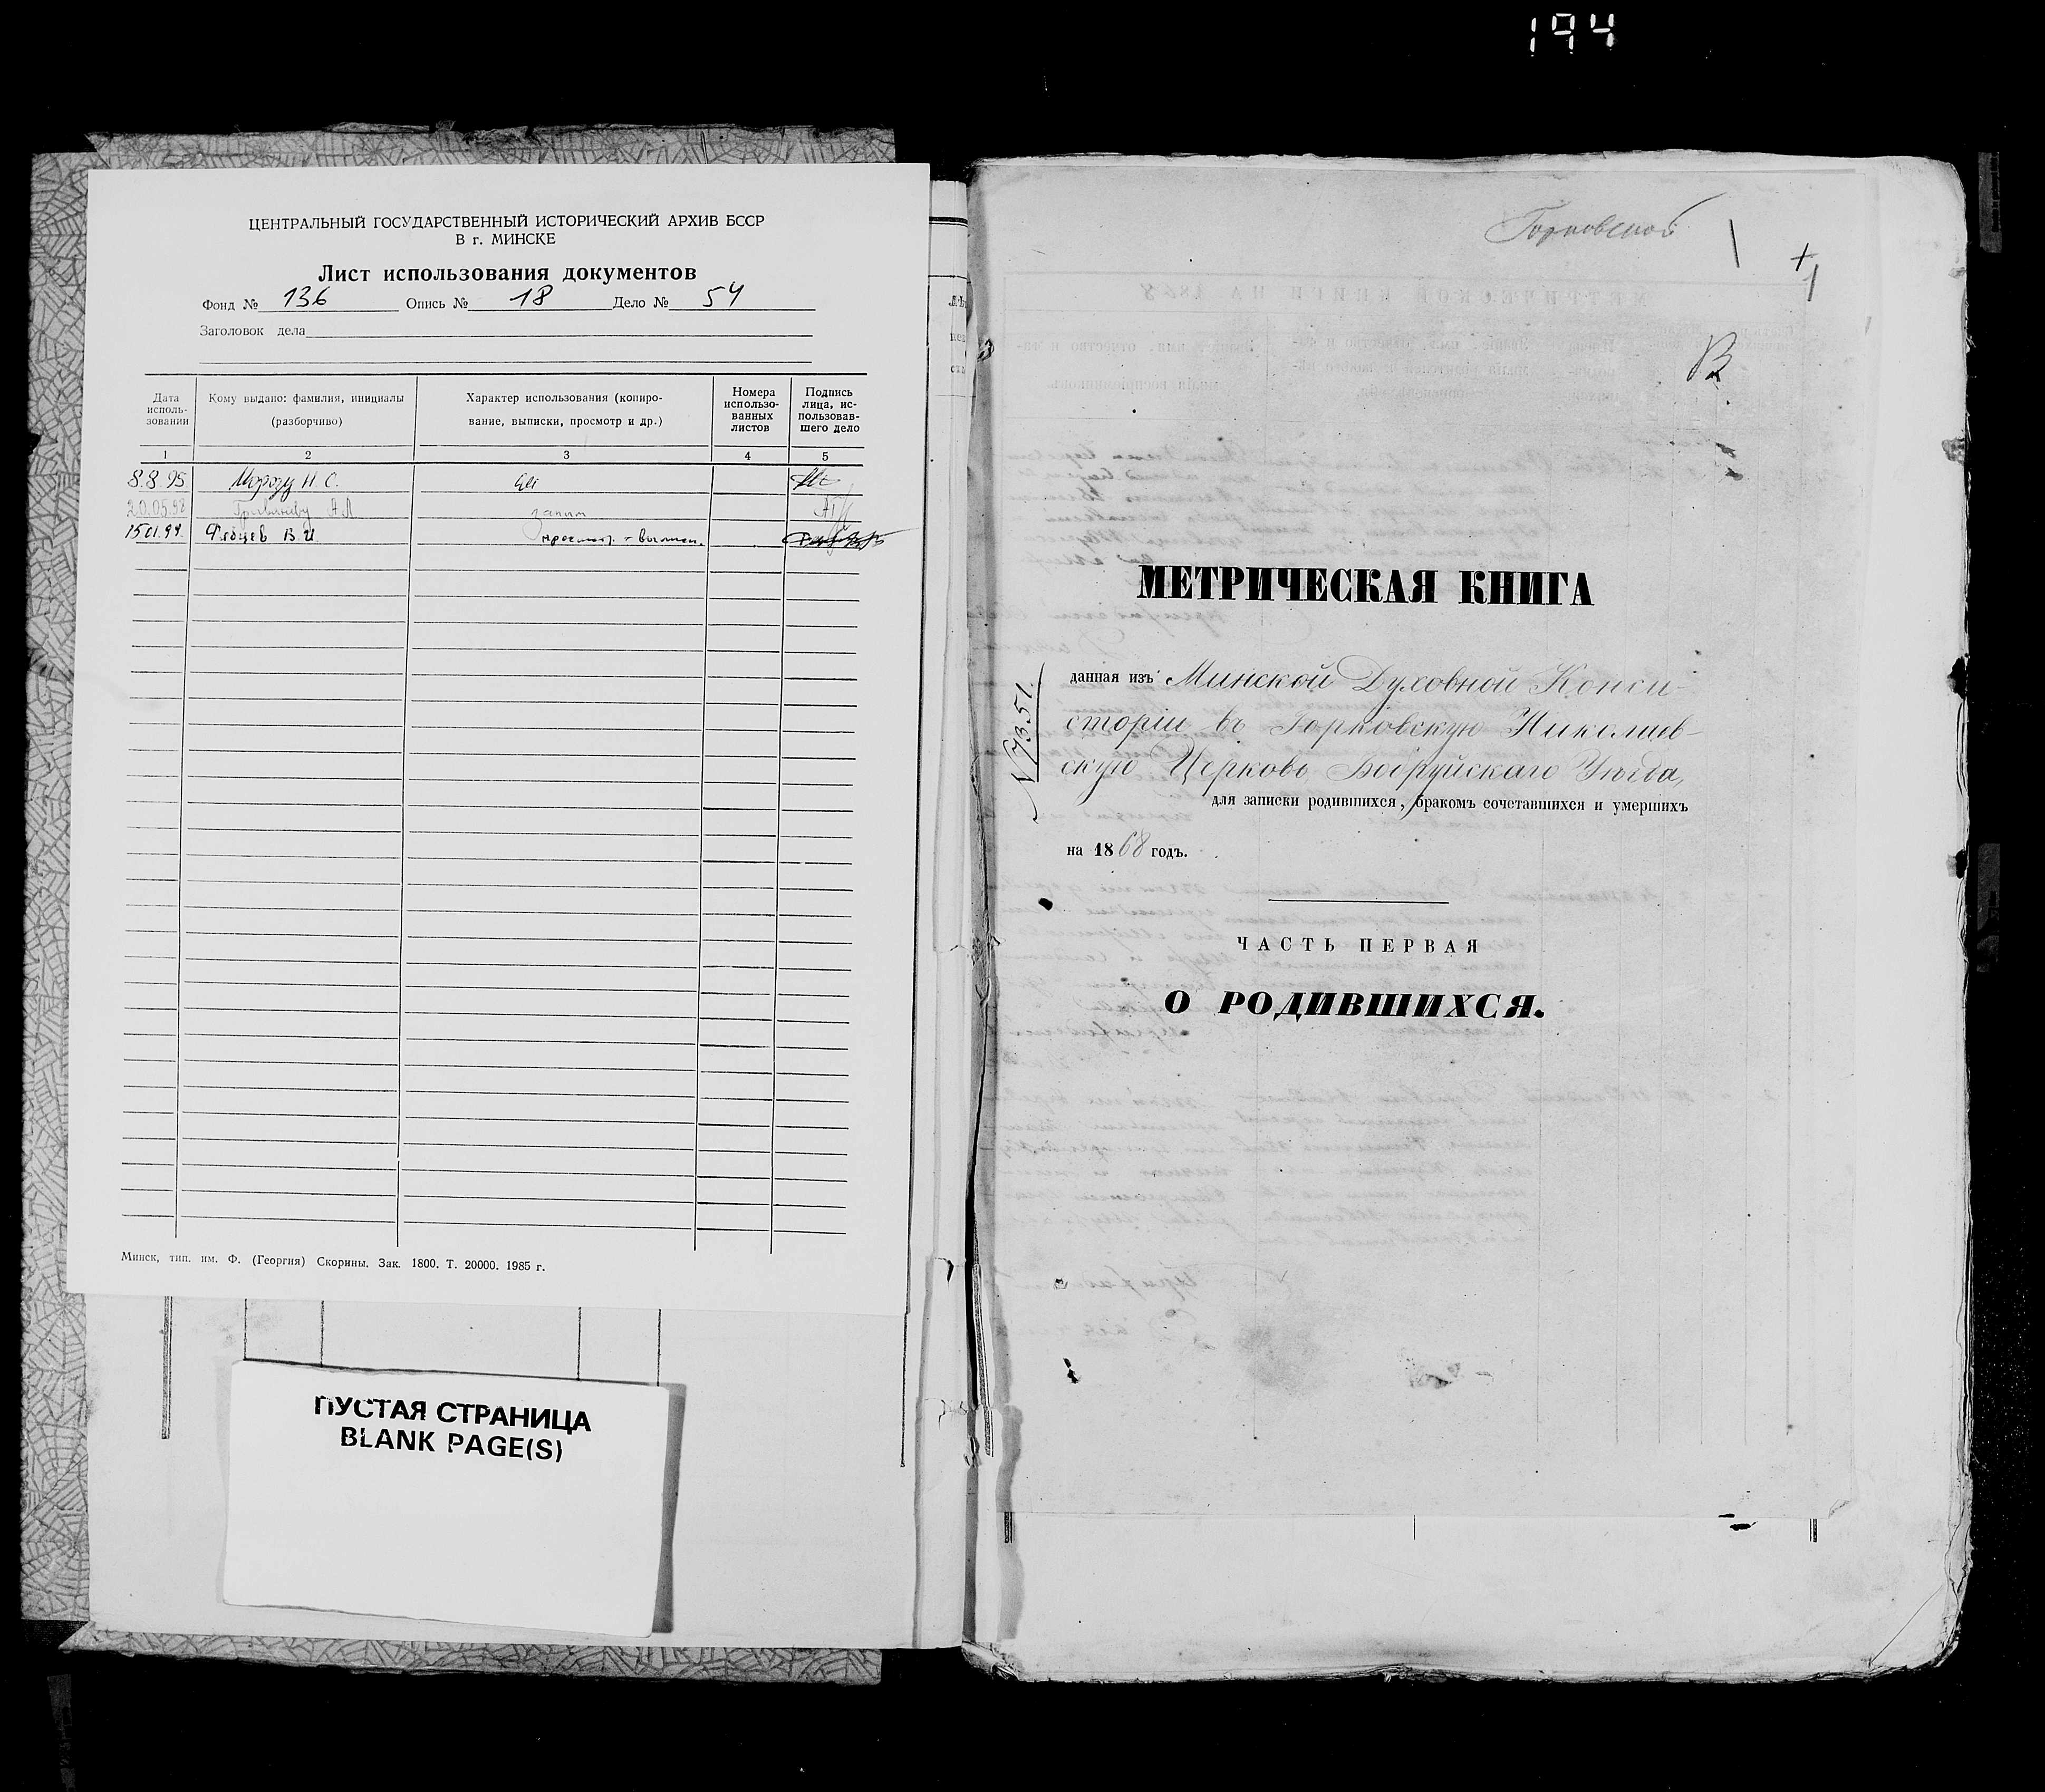 194
ЦЕНТРАЛЬНЫЙ ГОСУДАРСТВЕННЫЙ ИСТОРИЧЕСКИЙ АРХИВ БССР
В г. МИНСКЕ
Лист использования документов
Фонд № 136 Опись № 18 Дело № 54
Заголовок дела
Дата исполь-зовании
Кому выдано: фамилия, инициалы (разборчиво)
Характер использования (копиро-вание, выписки, просмотр и др.)
Номера использо-ванных листов
Подпись лица, ис-пользовав-шего дело
1 2 3 4 5
8.8.95 Морозу Н. С.
20.05.98 А Л
15.01.99. В И просмотр. + выписк.
Минск, тип. им. Ф. (Георгия) Скорины. Зак. 1800. Т. 20000. 1985 г.
ПУСТАЯ СТРАНИЦА
BLANK PAGE(S)
Горковской
1
В
МЕТРИЧЕСКАЯ КНИГА
N 7351.
данная изъ Минской Духовной Конси-
сторіи въ Горковскую Николаев-
скую Церковь Бобруйскаго Уѣзда,
для записки родившихся, бракомъ сочетавшихся и умершихъ
на 1868 годъ.
ЧАСТЬ ПЕРВАЯ
О РОДИВШИХСЯ.